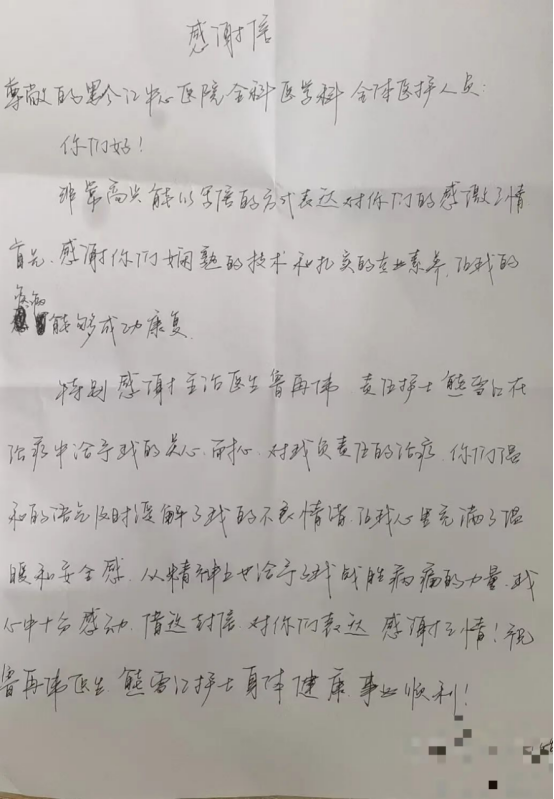 感谢信
尊敬的黔江中心医院全科医学科全体医护人员:
你们好!
非常高兴能以写信的方式表达对你们的感激之情
首先,感谢你们娴熟的技术和扎实的专业素养,让我的
疾病
能够成功康复.
特别感谢主治医生鲁再伟 责任护士熊雪江在
治疗中给予我的关心.耐心.对我负责任的治疗.你们温
和的语气及时缓解了我的不良情绪.让我心里充满了温
暖和安全感.从精神上也给予了我战胜病痛的力量.我
心中十分感动.借这封信.对你们表达 感谢之情!祝
鲁再伟医生.熊雪江护士身体健康 事业顺利!